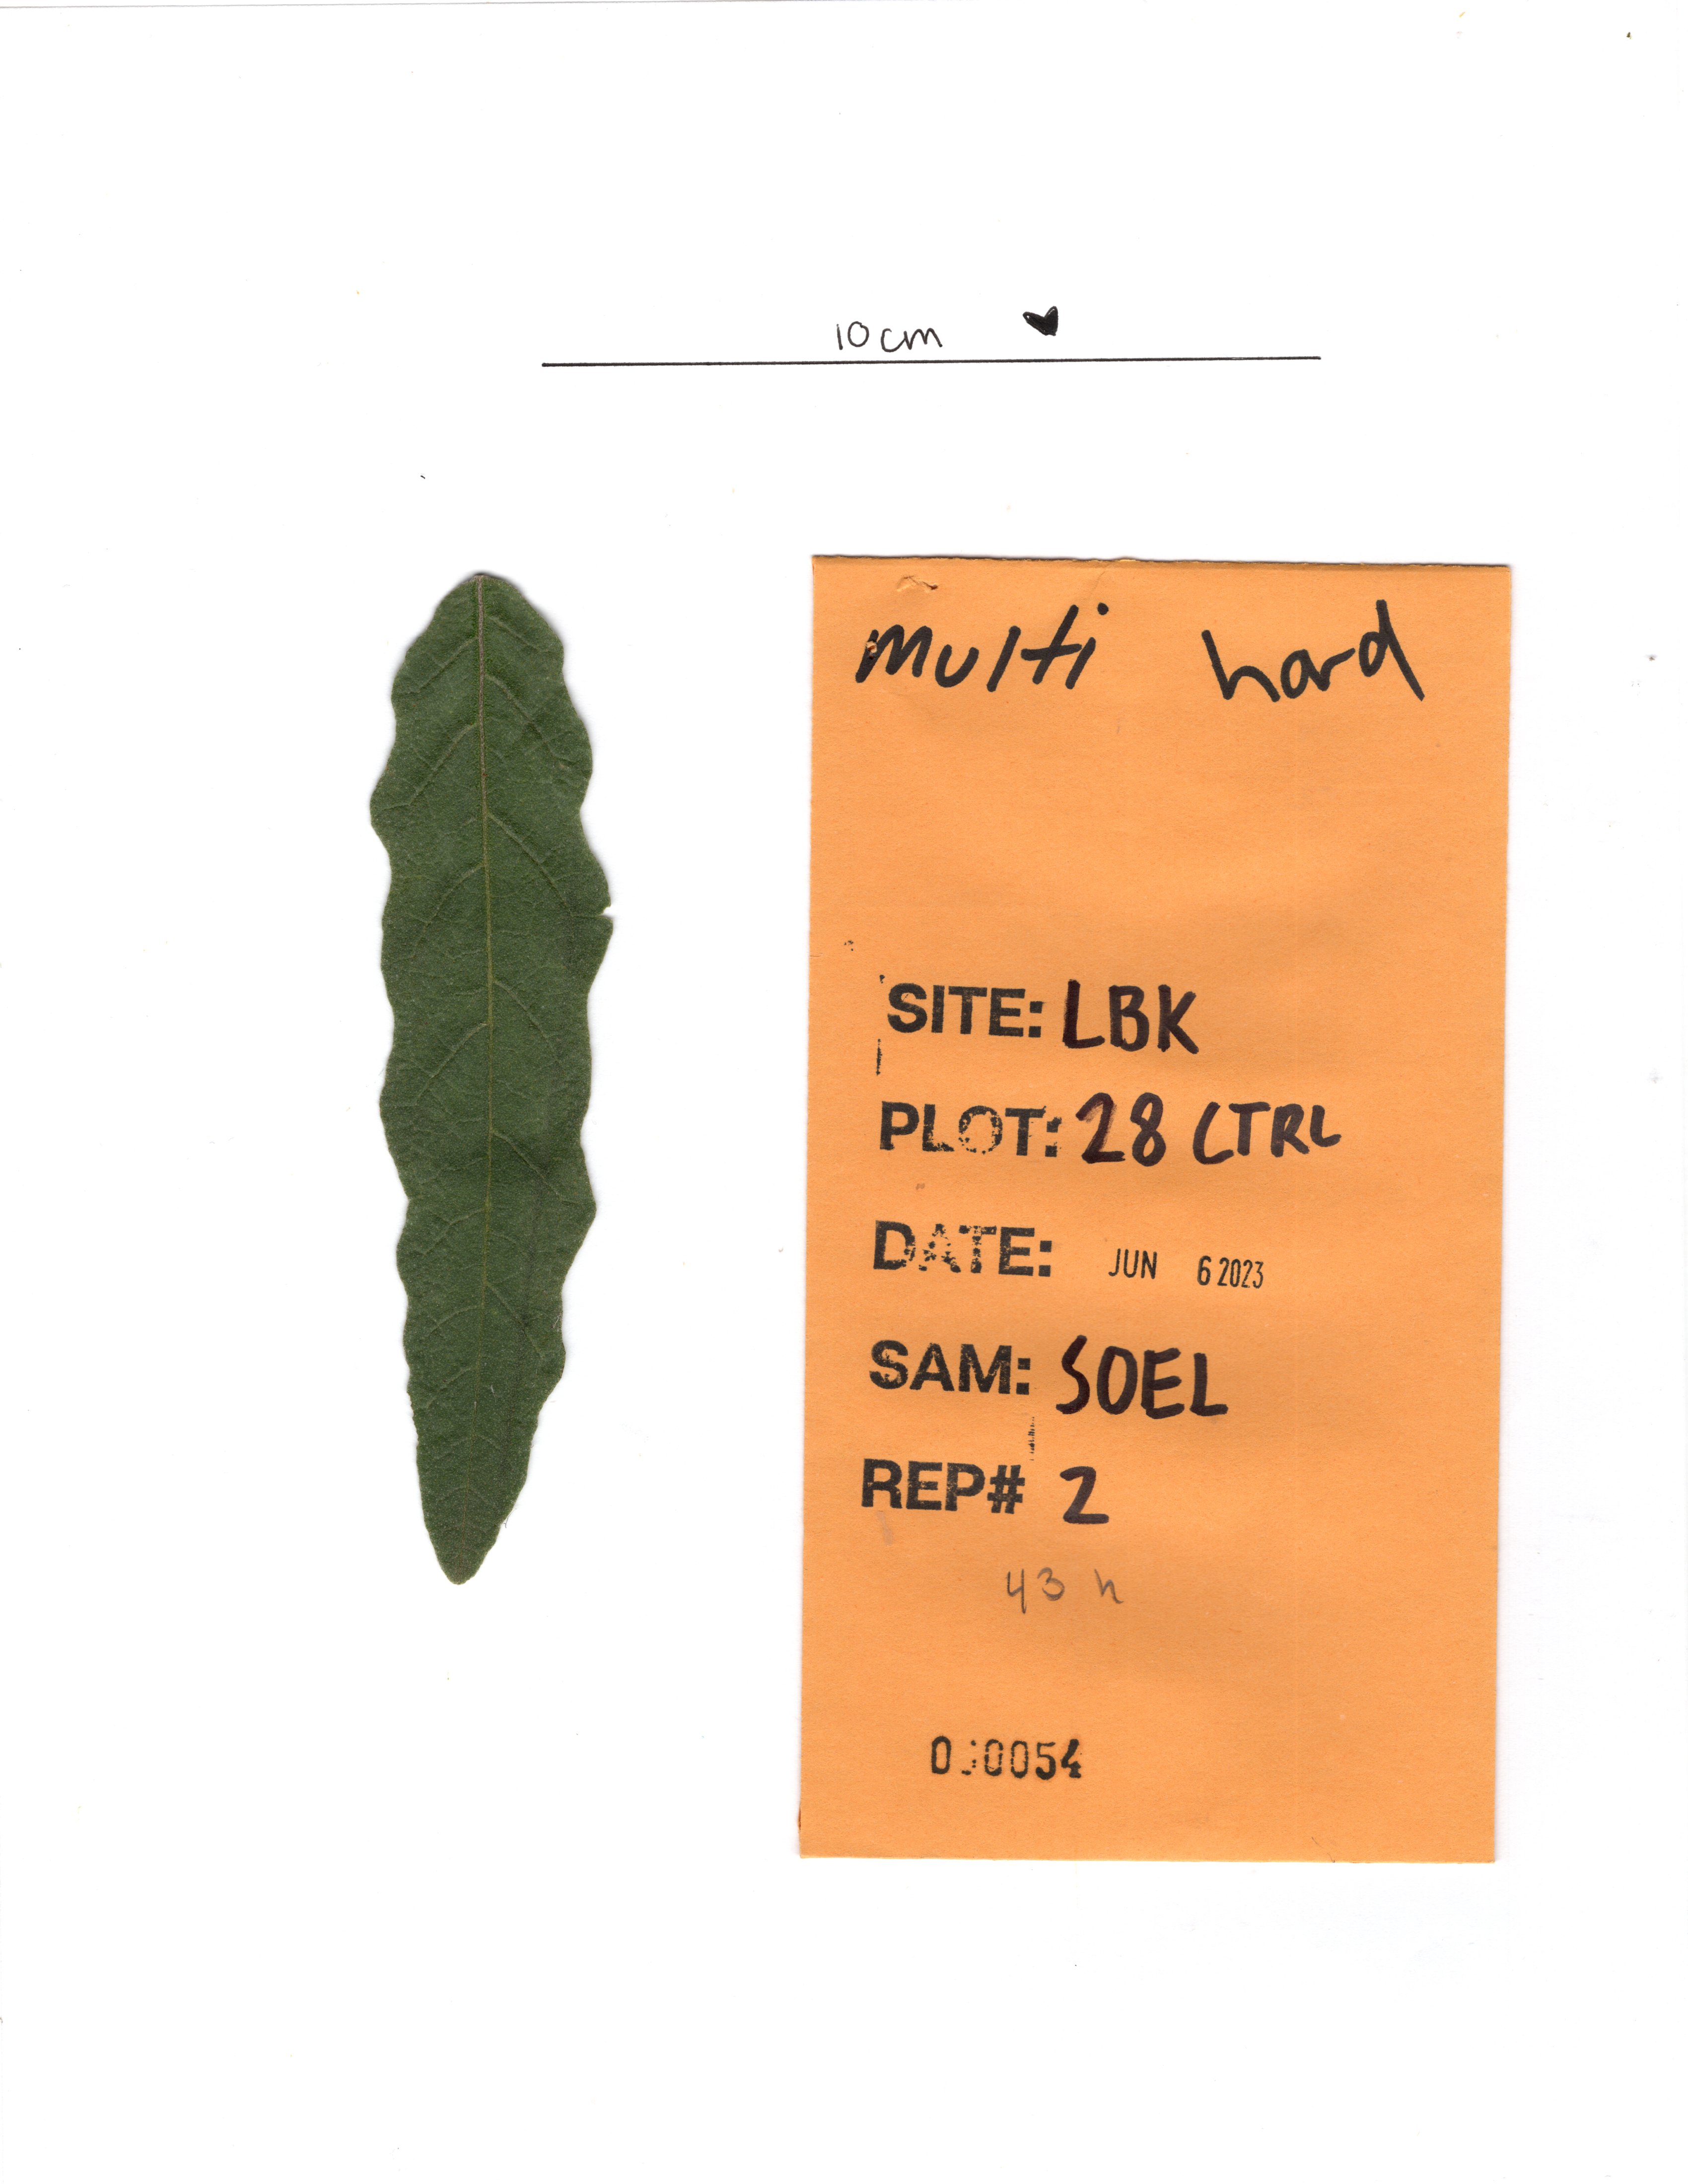 10cm
multi hard
SITE: LBK
PLOT: 28 CTRL
DATE: JUN 6 2023
SAM: SOEL
REP# 2
43 h
000054